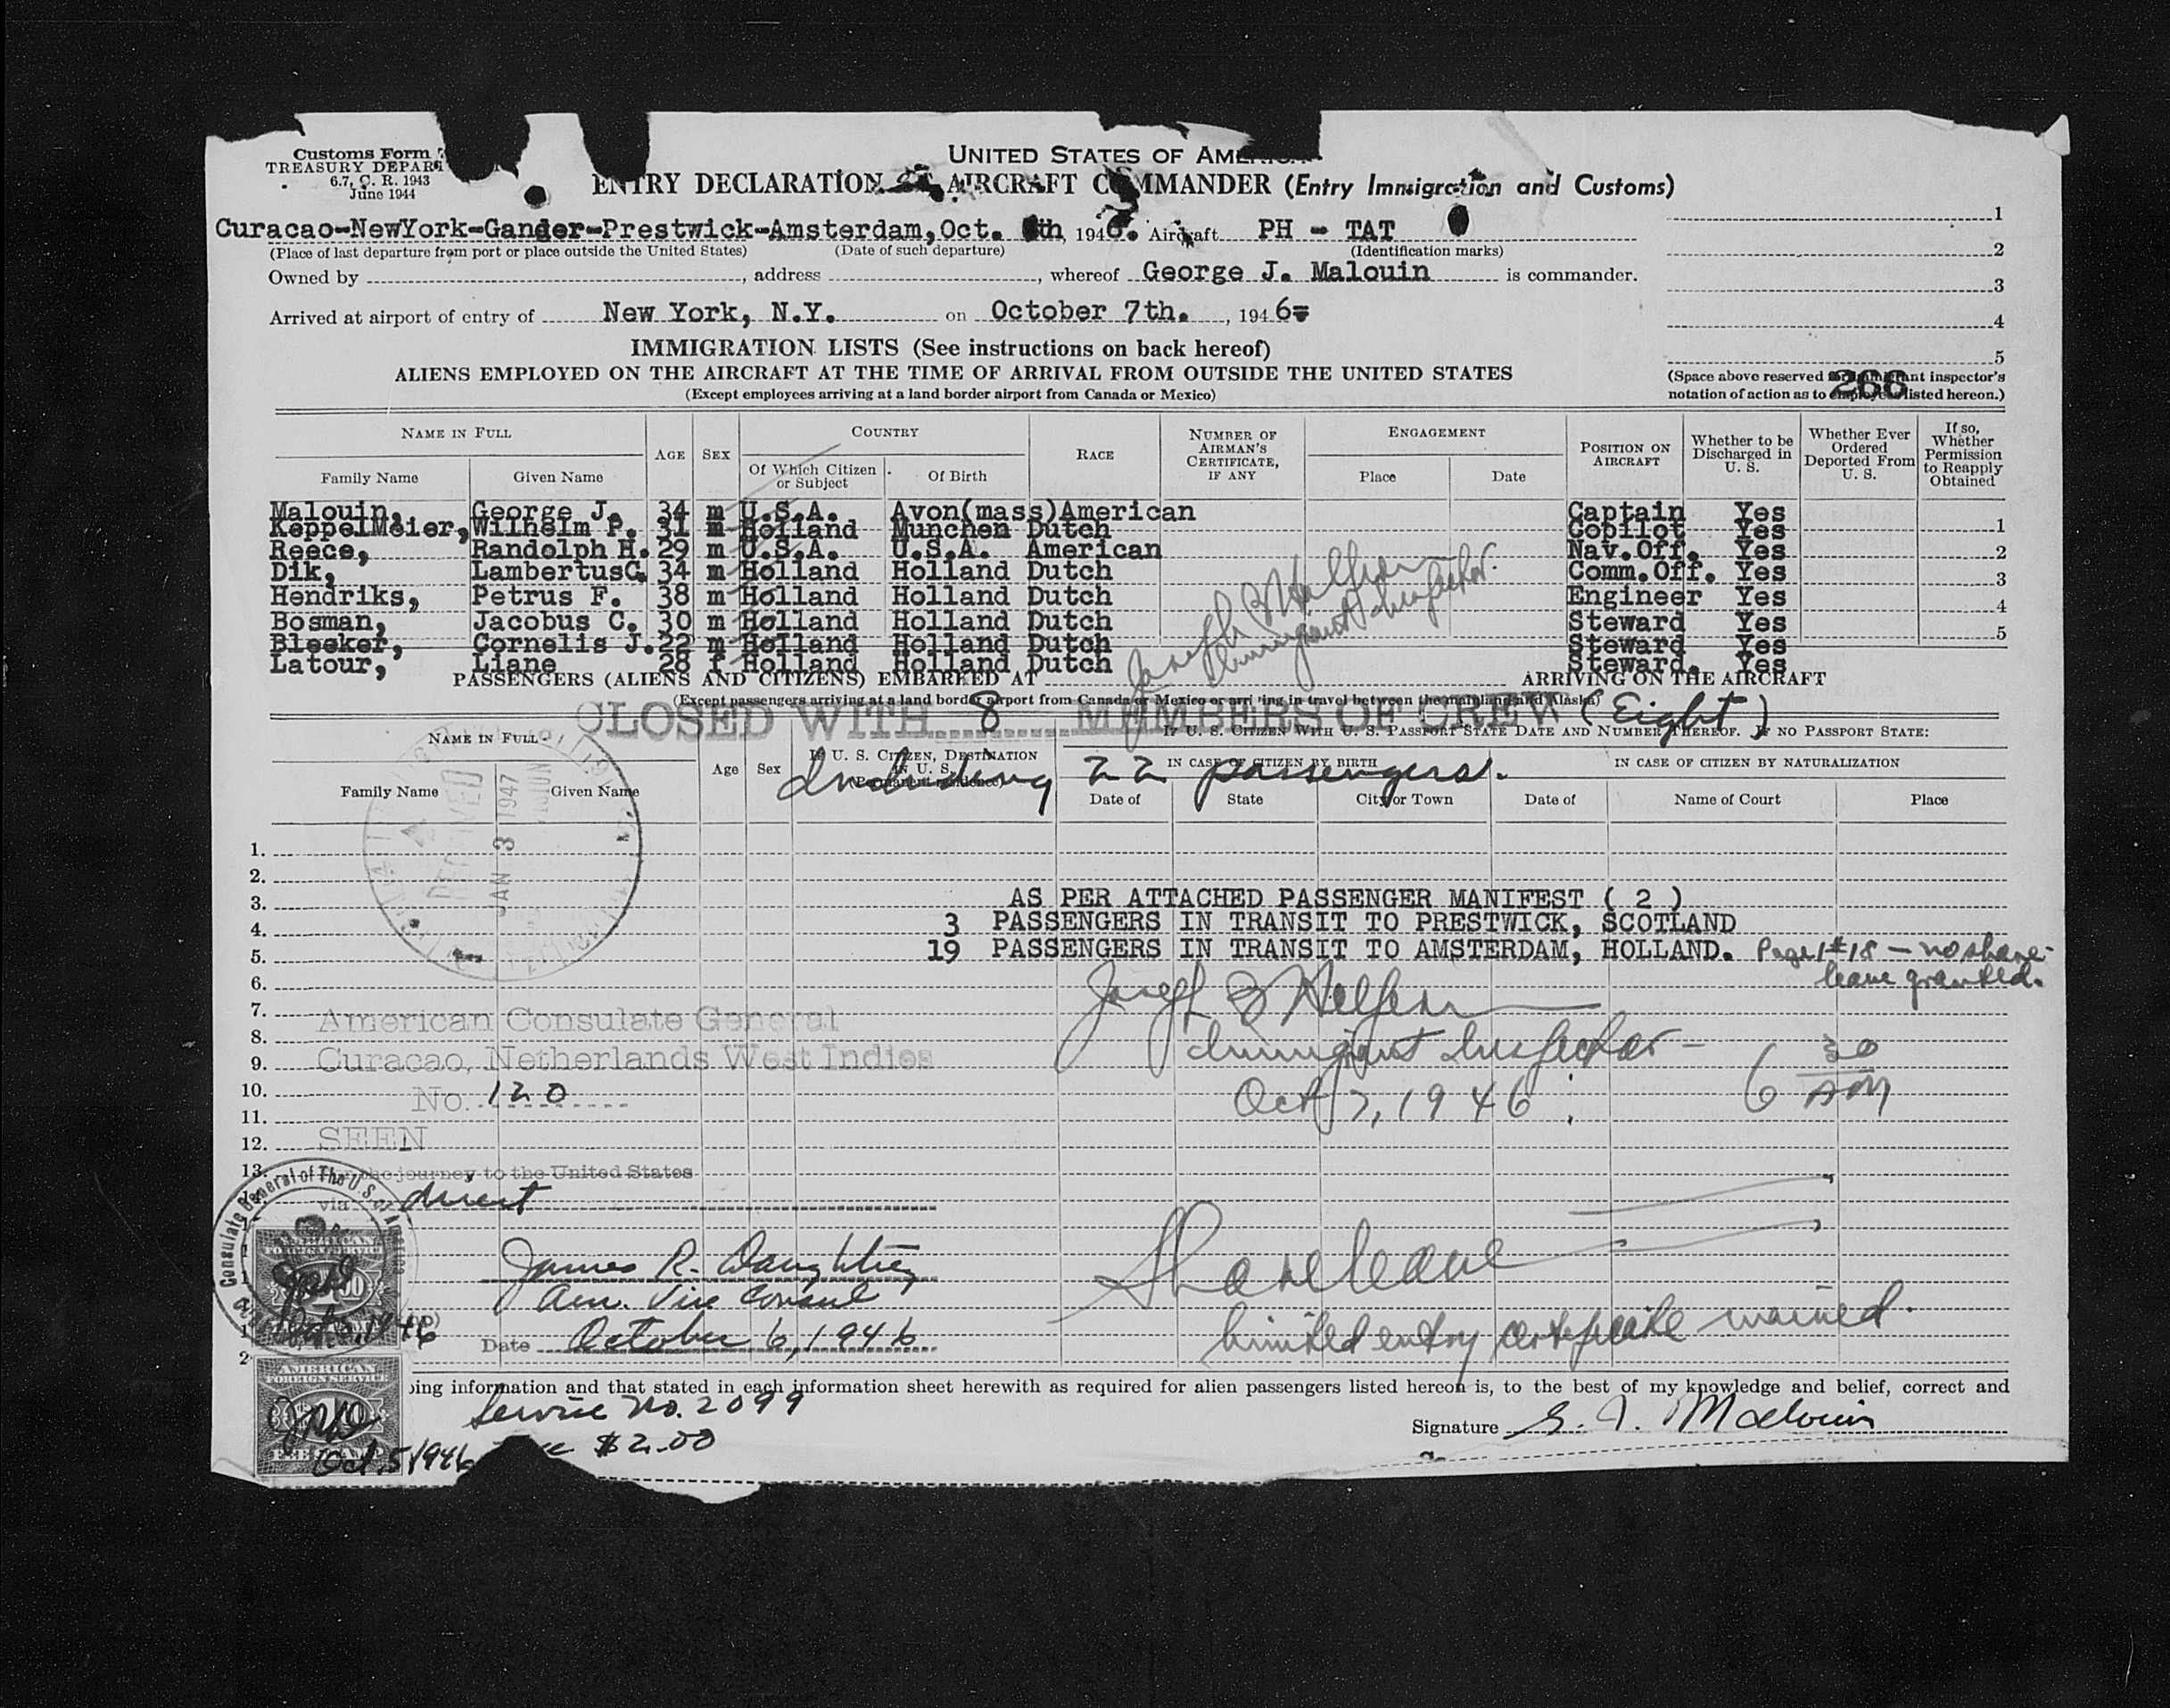 Customs Form
TREASURY DEPAR
6.7, C. R. 1943
June 1944
UNITED STATES OF
ENTRY DECLARATION AIRCRAFT COMMANDER (Entry Immigration and Customs)
Curacao-NewYork-Gander-Prestwick-Amsterdam, Oct. th, 1946. Aircraft PH - TAT
(Place of last departure from port or place outside the United States) (Date of such departure) (Identification marks)
Owned by , address , whereof George J. Malouin is commander.
Arrived at airport of entry of New York, N.Y. on October 7th. , 1946
1
2
3
4
5
(Space above reserved for immigrant inspector's
notation of action as to employees listed hereon.)
266
IMMIGRATION LISTS (See instructions on back hereof)
ALIENS EMPLOYED ON THE AIRCRAFT AT THE TIME OF ARRIVAL FROM OUTSIDE THE UNITED STATES
(Except employees arriving at a land border airport from Canada or Mexico)
NAME IN FULL AGE SEX COUNTRY RACE NUMBER OF AIRMAN'S CERTIFICATE, IF ANY ENGAGEMENT POSITION ON AIRCRAFT Whether to be Discharged in U. S. Whether Ever Ordered Deported From U. S. If so, Whether Permission to Reapply Obtained
Family Name Given Name Of Which Citizen or Subject Of Birth Place Date
Malouin, George J. 34 m U.S.A. Avon(mass)American Captain Yes
KeppelMeier, Wilhelm P. 31 m Holland Munchen Dutch Copilot Yes 1
Reece, Randolph H. 29 m U.S.A. U.S.A. American Nav.Off. Yes 2
Dik, LambertusC. 34 m Holland Holland Dutch Comm.Off. Yes 3
Hendriks, Petrus F. 38 m Holland Holland Dutch Engineer Yes 4
Bosman, Jacobus C. 30 m Holland Holland Dutch Steward Yes 5
Bleeker, Cornelis J. 22 m Holland Holland Dutch Steward Yes
Latour, Liane 28 f Holland Holland Dutch Steward. Yes
Joseph B Halfern
Immigrant Inspector.
PASSENGERS (ALIENS AND CITIZENS) EMBARKED AT ARRIVING ON THE AIRCRAFT
(Except passengers arriving at a land border airport from Canada or Mexico or arriving in travel between the mainland and Alaska)
CLOSED WITH 8 MEMBERS OF CREW (Eight)
Including 22 passengers.
NAME IN FULL Age Sex IF U. S. CITIZEN, DESTINATION IN U. S. (Permanent residence) IF U. S. CITIZEN WITH U. S. PASSPORT STATE DATE AND NUMBER THEREOF. IF NO PASSPORT STATE:
IN CASE OF CITIZEN BY BIRTH IN CASE OF CITIZEN BY NATURALIZATION
Family Name Given Name Date of State City or Town Date of Name of Court Place
RECEIVED
JAN 3 1947
1.
2.
3. AS PER ATTACHED PASSENGER MANIFEST ( 2 )
4. 3 PASSENGERS IN TRANSIT TO PRESTWICK, SCOTLAND
5. 19 PASSENGERS IN TRANSIT TO AMSTERDAM, HOLLAND. Page 1 #18 — no shore
leave granted.
6.
7.
8.
9.
10.
11.
12.
13.
Joseph B Halfern
Immigrant Inspector -
Oct 7, 1946 6 30 AM
American Consulate General
Curacao, Netherlands West Indies
No. 120
SEEN
For the journey to the United States
via direct
Consulate General of The U.S. of America
James R. Daughtrey
Am. Vice Consul
Date October 6, 1946
Shore leave
limited entry certificate waived.
AMERICAN
FOREIGN SERVICE
AMERICAN
FOREIGN SERVICE
FEE STAMP
JRD
Oct. 5 1946
ing information and that stated in each information sheet herewith as required for alien passengers listed hereon is, to the best of my knowledge and belief, correct and
Service No. 2099
$2.00
Signature G. J. Malouin